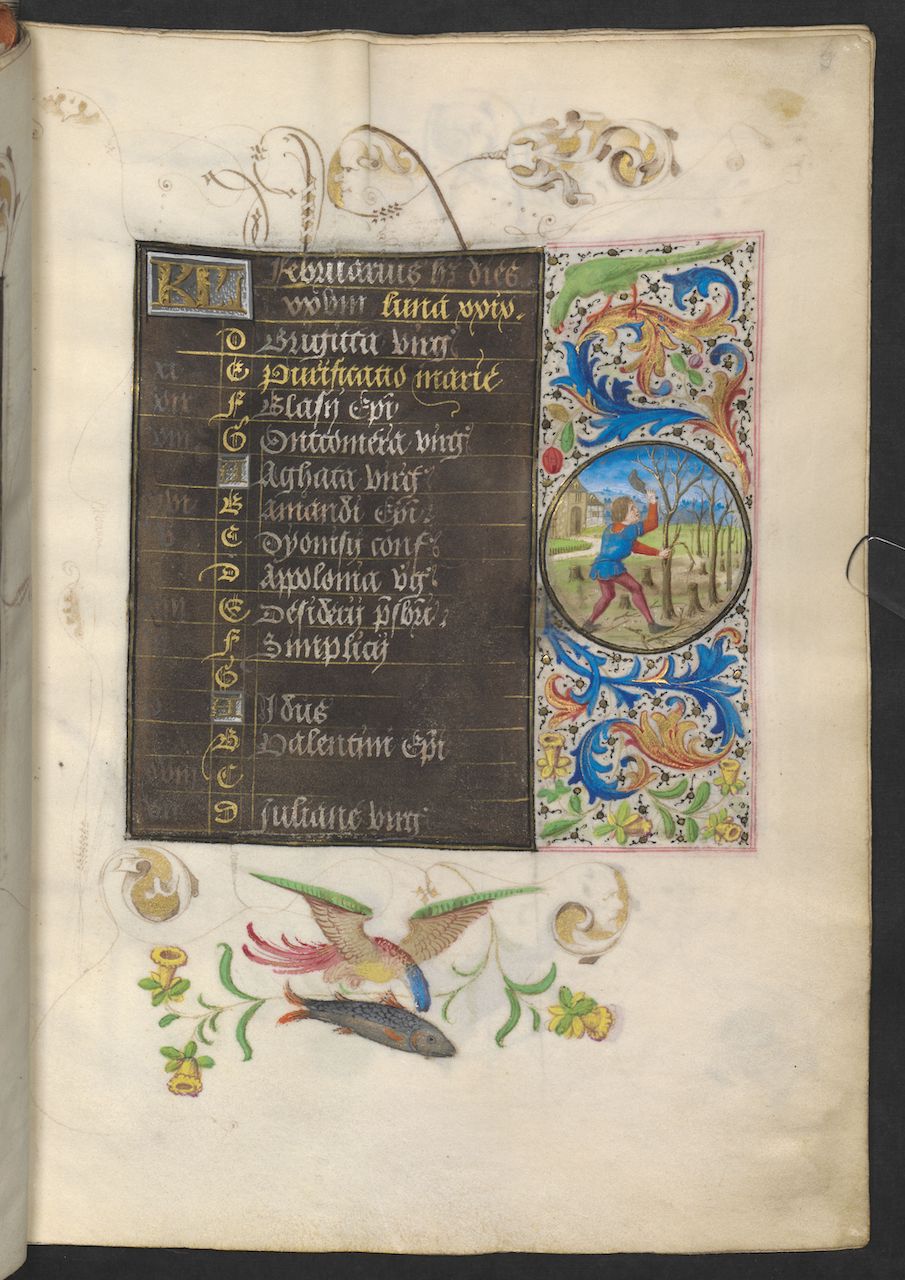 KL Februarius h3 dies
xxviii luna xxix.
D Brigitta virg
xi E Purificatio marie
F Blasii Epi
viii G
A Aghata virg
xvi B Amandi Epi.
C Dyonisii conf
D Appolonia vig
E Desiderii psbri.
F Simplicii
G
A Idus
B Valentini Epi
C
D Juliane virg